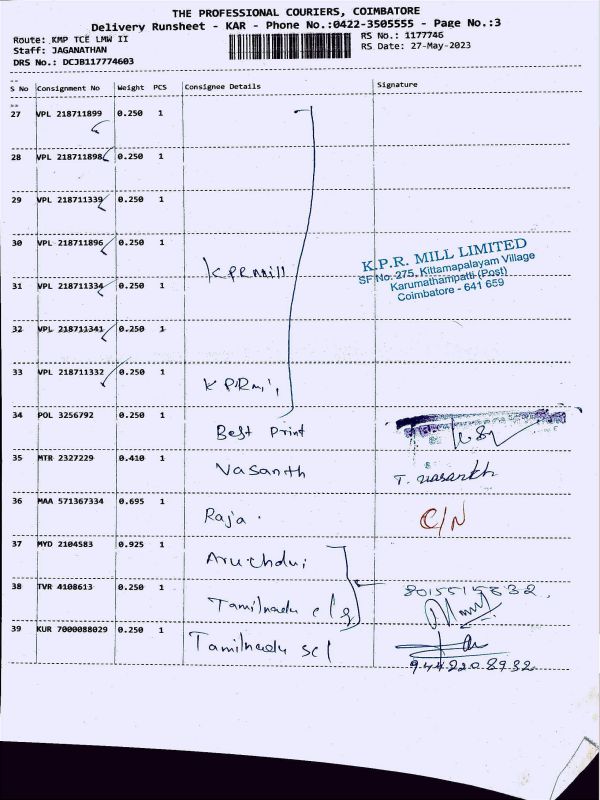 THE PROFESSIONAL COURIERS, COIMBATORE
Delivery Runsheet - KAR - Phone No.:0422-3505555 - Page No.:3
Route: KMP TCE LMW II
RS No.: 1177746
Staff: JAGANATHAN
RS Date: 27-May-2023
DRS No.: DCJB117774603
S No Consignment No Weight PCS Consignee Details Signature
27 VPL 218711899 0.250 1
28 VPL 218711898 0.250 1
29 VPL 218711339 0.250 1
30 VPL 218711896 0.250 1
K.P.R. MILL LIMITED
SF No. 275, Kittamapalayam Village
Karumathampatti (Post)
Coimbatore - 641 659
KPRMill
31 VPL 218711334 0.250 1
32 VPL 218711341 0.250 1
33 VPL 218711332 0.250 1
34 POL 3256792 0.250 1 Best Print
35 MTR 2327229 0.410 1 Vasanth T. Vasanth
36 MAA 571367334 0.695 1 Raja. C/N
37 MYD 2104583 0.925 1
38 TVR 4108613 0.250 1 Tamilnadu clg
39 KUR 7000088029 0.250 1 Tamilnadu scl
9442208932